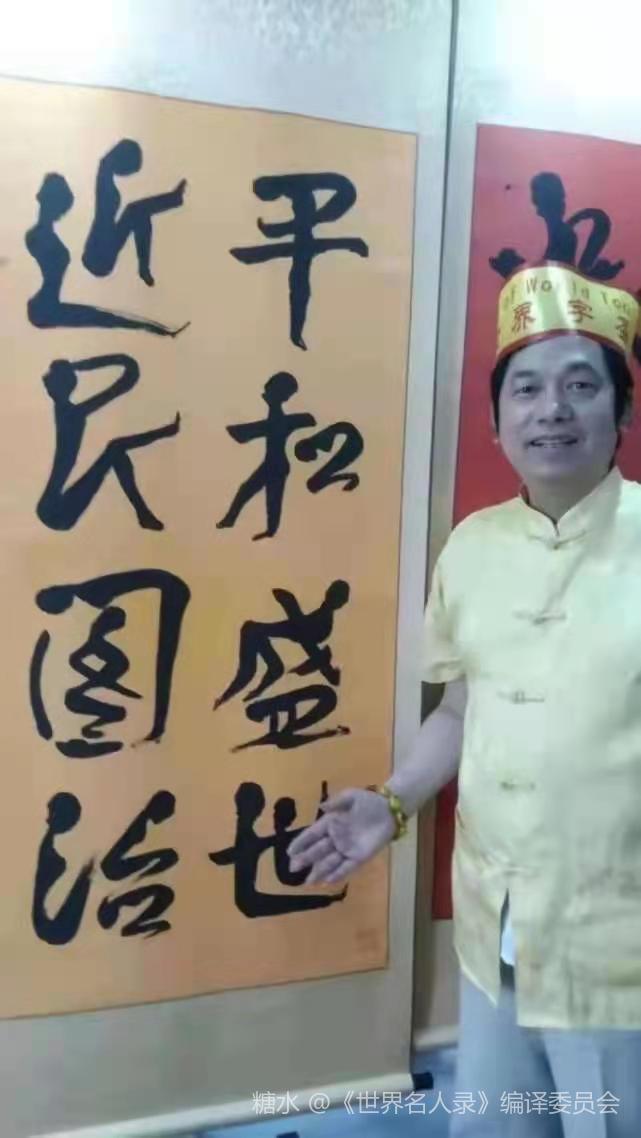 平和盛世
近民图治
of World
界字
糖水 @《世界名人录》编译委员会